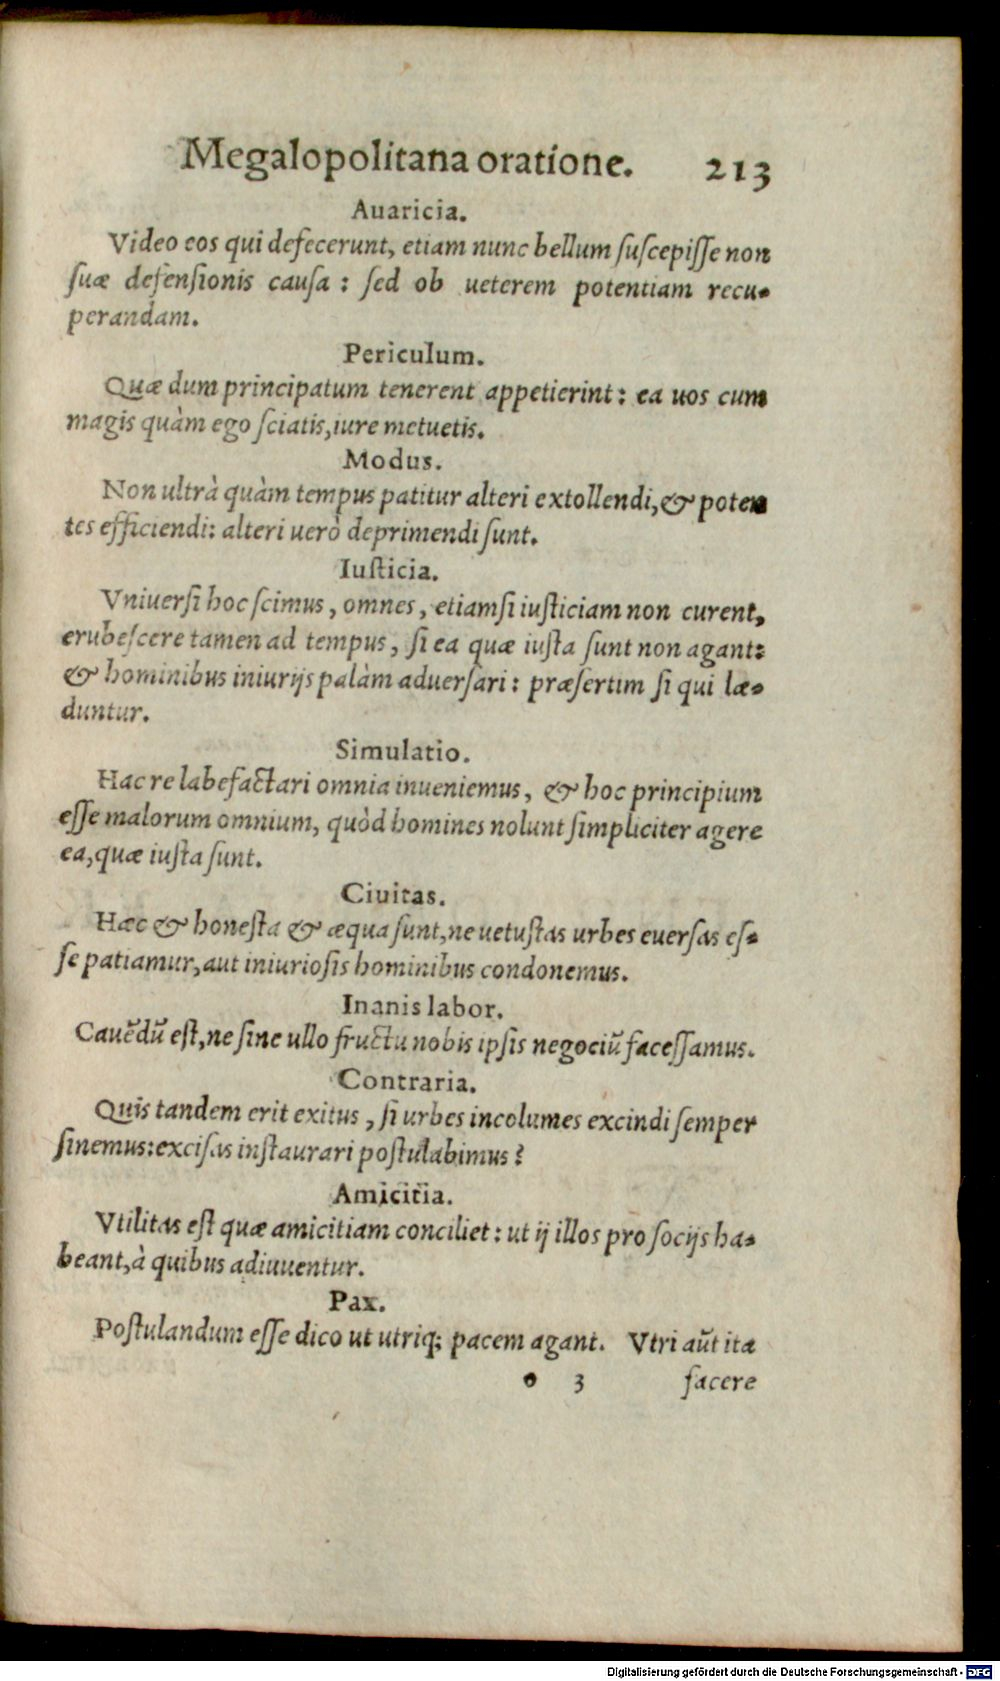 Megalopolitana oratione. 213
Auaricia.
Video eos qui defecerunt, etiam nunc bellum ſuſcepiſſe non
ſuæ defenſionis cauſa : ſed ob ueterem potentiam recu-
perandam.
Periculum.
Quæ dum principatum tenerent appetierint : ea uos cum
magis quàm ego ſciatis, iure metuetis.
Modus.
Non ultrà quàm tempus patitur alteri extollendi, & poten
tes efficiendi: alteri uerò deprimendi ſunt.
Iuſticia.
Vniuerſi hoc ſcimus, omnes, etiamſi iuſticiam non curent,
erubeſcere tamen ad tempus, ſi ea quæ iuſta ſunt non agant:
& hominibus iniurijs palàm aduerſari : præſertim ſi qui læ-
duntur.
Simulatio.
Hac re labefactari omnia inueniemus, & hoc principium
eſſe malorum omnium, quòd homines nolunt ſimpliciter agere
ea, quæ iuſta ſunt.
Ciuitas.
Hæc & honeſta & æqua ſunt, ne uetuſtas urbes euerſas eſ-
ſe patiamur, aut iniurioſis hominibus condonemus.
Inanis labor.
Cauẽdũ eſt, ne ſine ullo fructu nobis ipſis negociũ faceſſamus.
Contraria.
Quis tandem erit exitus, ſi urbes incolumes excindi ſemper
ſinemus: exciſas inſtaurari poſtulabimus?
Amicitia.
Vtilitas eſt quæ amicitiam conciliet : ut ij illos pro ſocijs ha-
beant, à quibus adiuuentur.
Pax.
Poſtulandum eſſe dico ut utriq; pacem agant. Vtri aũt ita
o 3 facere
Digitalisierung gefördert durch die Deutsche Forschungsgemeinschaft - DFG